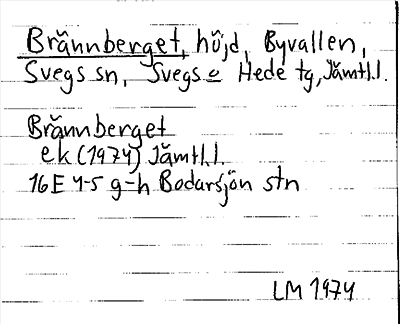 Brännberget, höjd, Byvallen,
Svegs sn, Svegs o Hede tg, Jämtl.l.
Brännberget
ek (1974) Jämtl.l.
16E 4-5 g-h Bodarsjön stn
LM 1974